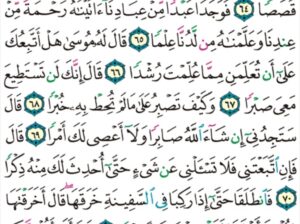 قَصَصًا ٦٤ فَوَجَدَا عَبْدًا مِّنْ عِبَادِنَآ ءَاتَيْنَٰهُ رَحْمَةً مِّنْ
عِندِنَا وَعَلَّمْنَٰهُ مِن لَّدُنَّا عِلْمًا ٦٥ قَالَ لَهُۥ مُوسَىٰ هَلْ أَتَّبِعُكَ
عَلَىٰٓ أَن تُعَلِّمَنِ مِمَّا عُلِّمْتَ رُشْدًا ٦٦ قَالَ إِنَّكَ لَن تَسْتَطِيعَ
مَعِىَ صَبْرًا ٦٧ وَكَيْفَ تَصْبِرُ عَلَىٰ مَا لَمْ تُحِطْ بِهِۦ خُبْرًا ٦٨ قَالَ
سَتَجِدُنِىٓ إِن شَآءَ ٱللَّهُ صَابِرًا وَلَآ أَعْصِى لَكَ أَمْرًا ٦٩ قَالَ
فَإِنِ ٱتَّبَعْتَنِى فَلَا تَسْـَٔلْنِى عَن شَىْءٍ حَتَّىٰٓ أُحْدِثَ لَكَ مِنْهُ ذِكْرًا
٧٠ فَٱنطَلَقَا حَتَّىٰٓ إِذَا رَكِبَا فِى ٱلسَّفِينَةِ خَرَقَهَا قَالَ أَخَرَقْتَهَا